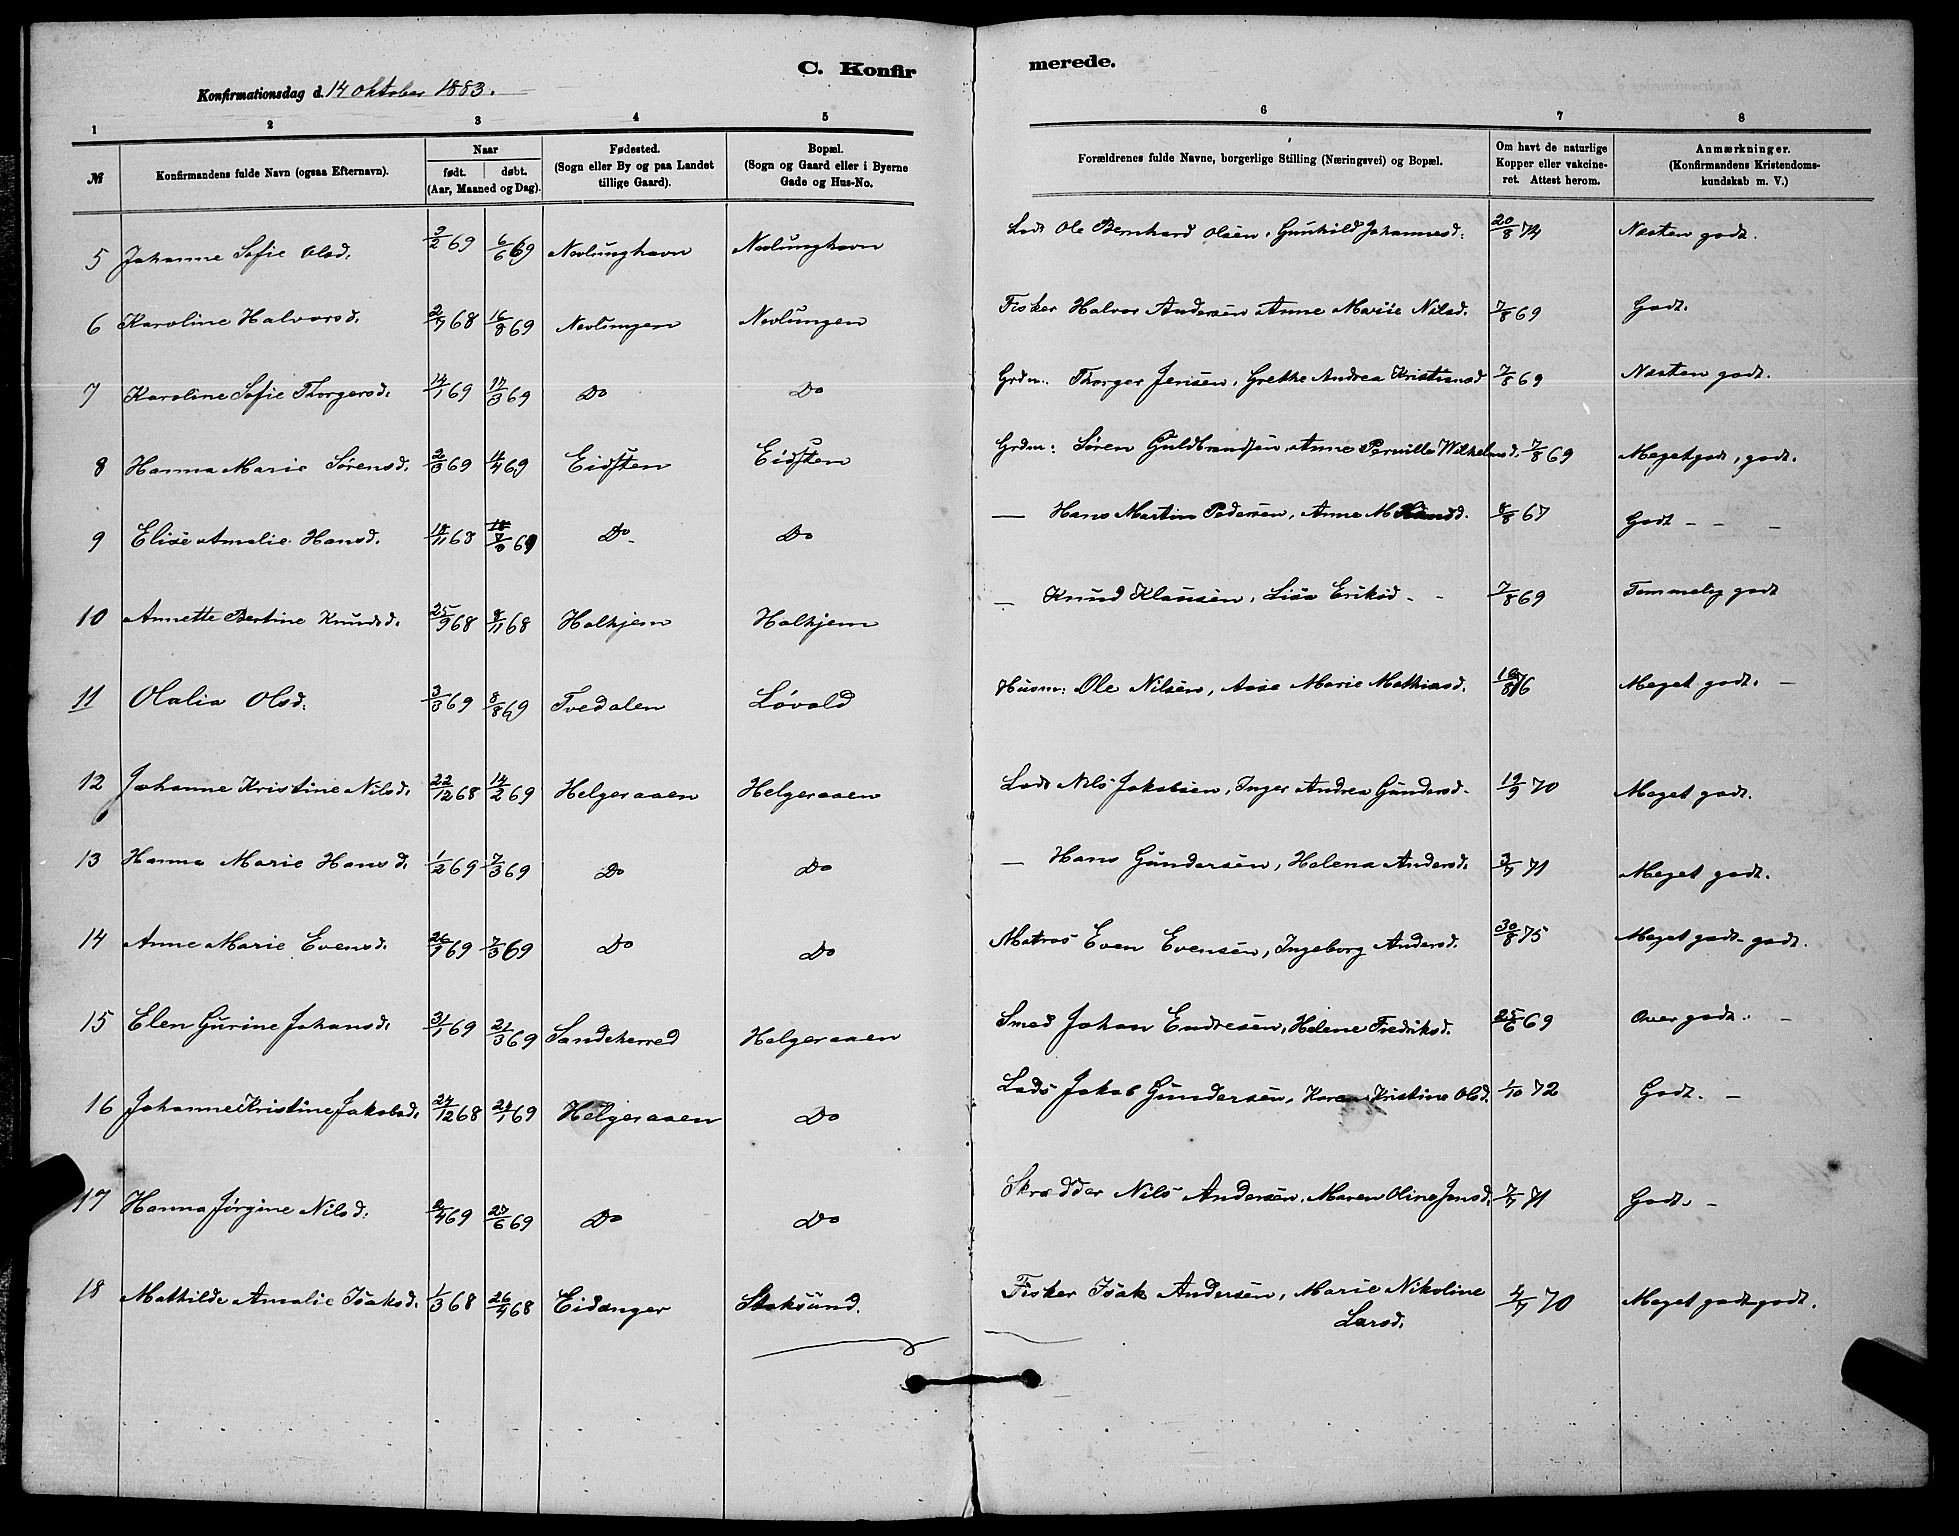 C. Konfirmerede.
Konfirmationsdag d. 14 Oktober 1883.
1 2 3 4 5 6 7 8
№ | Konfirmandens fulde Navn (ogsaa Efternavn). | Naar født. døbt. (Aar, Maaned og Dag). | Fødested. (Sogn eller By og paa Landet tillige Gaard). | Bopæl. (Sogn og Gaard eller i Byerne Gade og Hus-No. | Forældrenes fulde Navne, borgerlige Stilling (Næringsvei) og Bopæl. | Om havt de naturlige Kopper eller vakcineret. Attest herom. | Anmærkninger. (Konfirmandens Kristendomskundskab m. V.)
5 Johanne Sofie Olsd. 69 6/6 69 Nevlunghavn Nevlunghavn Lods Ole Bernhard Olsen, Gunhild Johannesd. 20/8 74 Næsten godt.
6 Karoline Halvorsd. 2/7 68 16/8 69 Nevlungen Nevlungen Fisker Halvor Andersen Anne Marie Nilsd. 7/8 69 Godt.
7 Karoline Sofie Thorgersd. 14/1 69 17/3 69 Do Do Grdm: Thorger Jensen, Grethe Andrea Kristiansd 7/8 69 Næsten godt.
8 Hanna Marie Sørensd. 2/3 69 4/4 69 Eidsten Eidsten Grdm: Søren Guldbrandsen, Anne Pernille Wilhelmsd. 7/8 69 Meget godt, godt.
9 Elise Amalie Hansd. 18/11 68 69 Do Do — Hans Martin Pedersen, Anne M Hansd. 67 Godt – – –
10 Annette Bertine Knudsd. 25/9 68 8/11 68 Halkjem Halkjem — Knud Klausen, Lisa Eriksd. - - 7/8 69 Temmelig godt
11 Olalia Olsd. 3/3 69 8/8 69 Tvedalen Løvald Husm: Ole Nilsen, Aase Marie Mathiasd. 16/8 76 Meget godt. –
12 Johanne Kristine Nilsd. 22/12 68 14/2 69 Helgeraaen Helgeraaen Lods Nils Jakobsen, Inger Andrea Gundersd. 19/9 70 Meget godt.
13 Hanna Marie Hansd. 1/2 69 7/3 69 Do Do — Hans Gundersen, Helena Andersd. 3/7 71 Meget godt.
14 Anne Marie Evensd. 26/1 69 7/3 69 Do Do Matros Even Evensen, Ingeborg Andersd. 30/8 75 Meget godt - godt.
15 Elen Gurine Johansd. 31/1 69 21/3 69 Sandeherred Helgeraaen Smed Johan Endresen, Helene Fredriksd. 25/6 69 Over godt. –
16 Johanne Kristine Jakobsd. 24/12 68 24/1 69 Helgeraaen Do Lods Jakob Gundersen, Karen Kristine Olsd. 1/10 72 Godt. –
17 Hanna Jørgine Nilsd. 69 27/6 69 Do Do Skrædder Nils Andersen, Maren Oline Jensd. 7/7 71 Godt. –
18 Mathilde Amalie Isaksd. 1/3 68 26/4 68 Eidanger Stoksund. Fisker Isak Andersen, Marie Nikoline 4/7 70 Meget godt - godt.
Larsd.